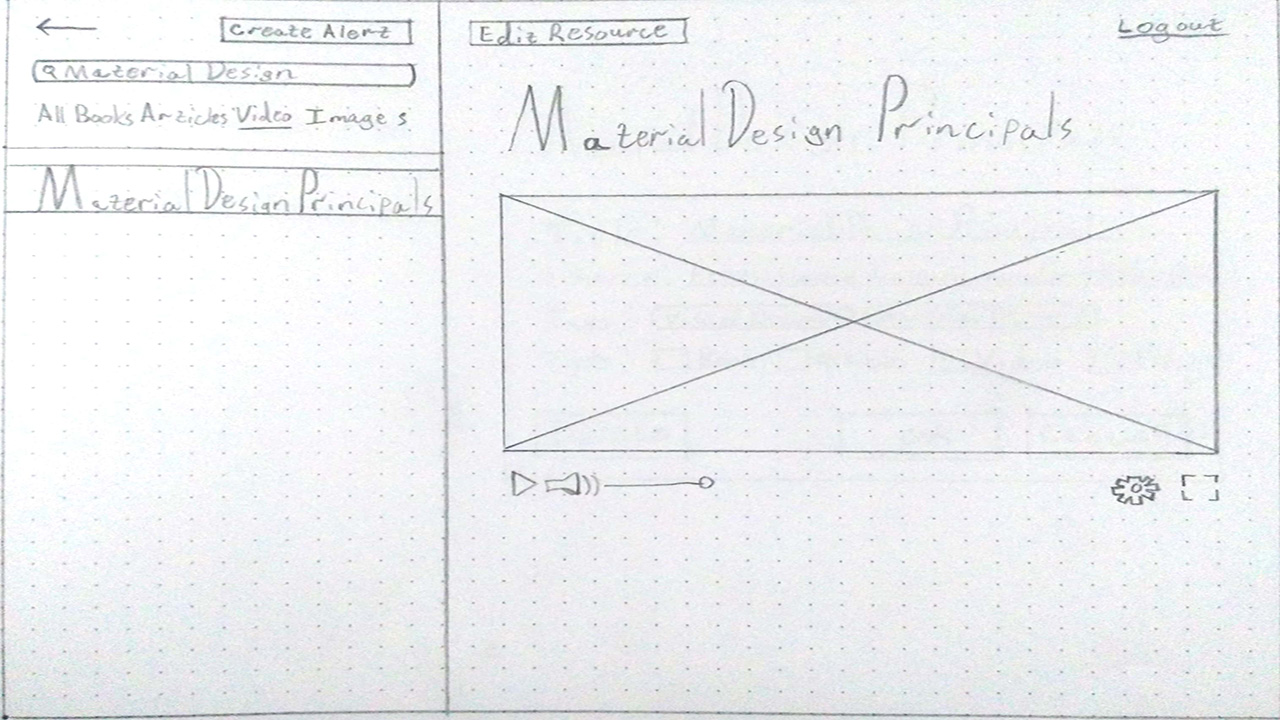 Create Alert
Material Design
All Books Articles Video Images
Material Design Principals
Edit Resource
Logout
Material Design Principals